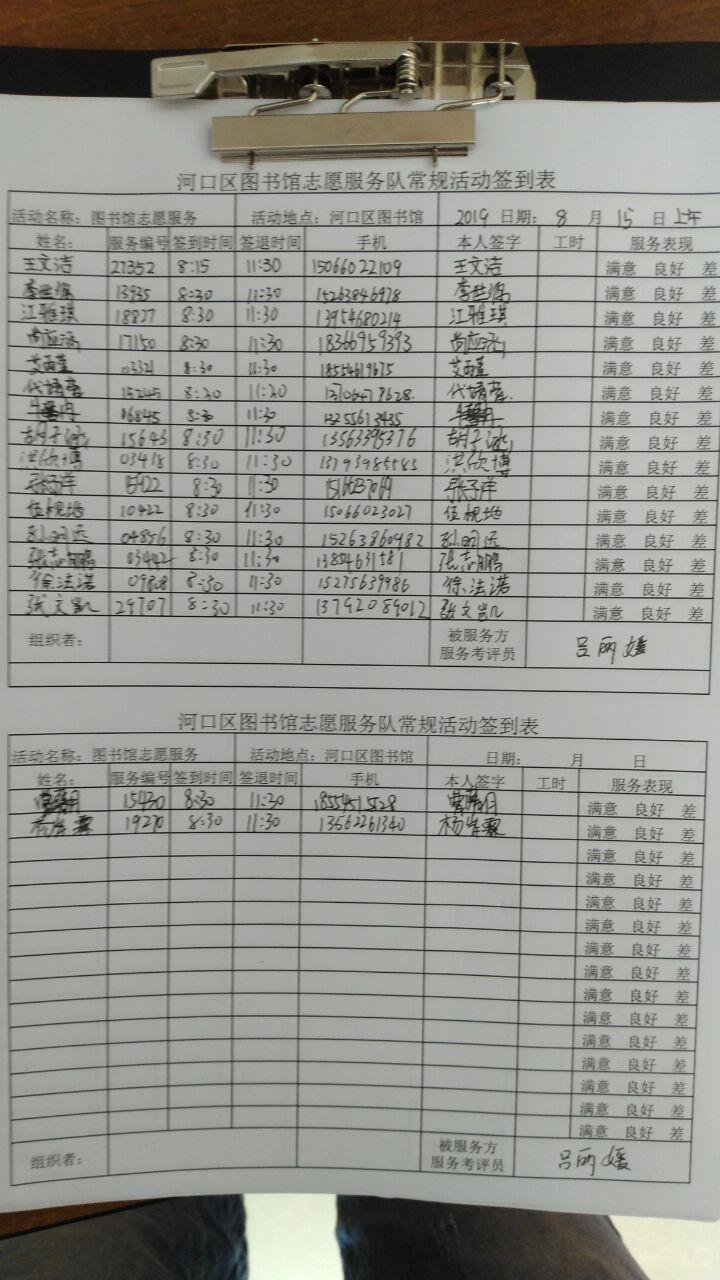 河口区图书馆志愿服务队常规活动签到表
活动名称：图书馆志愿服务 活动地点：河口区图书馆 2019 日期： 8 月 15 日 上午
姓名： 服务编号 签到时间 签退时间 手机 本人签字 工时 服务表现
王文洁 27352 8:15 11:30 15066022109 王文洁 满意 良好 差
李世儒 13935 8:30 11:30 15263846978 李世儒 满意 良好 差
江雅琪 18827 8:30 11:30 13954680214 江雅琪 满意 良好 差
尚应涵 17150 8:30 11:30 18366959393 尚应涵 满意 良好 差
艾雨萱 03321 8:30 11:30 18554619675 艾雨萱 满意 良好 差
代婧蓉 15245 8:30 11:30 代婧蓉 满意 良好 差
06845 8:30 11:30 满意 良好 差
胡子涵 15643 8:30 11:30 13563395376 胡子涵 满意 良好 差
洪欣博 03418 8:30 11:30 13793985583 洪欣博 满意 良好 差
张子洋 8:30 11:30 张子洋 满意 良好 差
伍枧地 10422 8:30 11:30 15066023027 伍枧地 满意 良好 差
04856 8:30 11:30 15263860982 满意 良好 差
张志鹏 03442 8:30 11:30 张志鹏 满意 良好 差
徐法诺 8:30 11:30 15275639986 徐法诺 满意 良好 差
张文凯 29707 8:30 11:30 13792089012 张文凯 满意 良好 差
组织者： 被服务方 吕丽媛
服务考评员
河口区图书馆志愿服务队常规活动签到表
活动名称：图书馆志愿服务 活动地点：河口区图书馆 日期： 月 日
姓名： 服务编号 签到时间 签退时间 手机 本人签字 工时 服务表现
8:30 11:30 满意 良好 差
杨岩霖 19270 8:30 11:30 13562261340 杨岩霖 满意 良好 差
满意 良好 差
满意 良好 差
满意 良好 差
满意 良好 差
满意 良好 差
满意 良好 差
满意 良好 差
满意 良好 差
满意 良好 差
满意 良好 差
满意 良好 差
满意 良好 差
满意 良好 差
组织者： 被服务方 吕丽媛
服务考评员